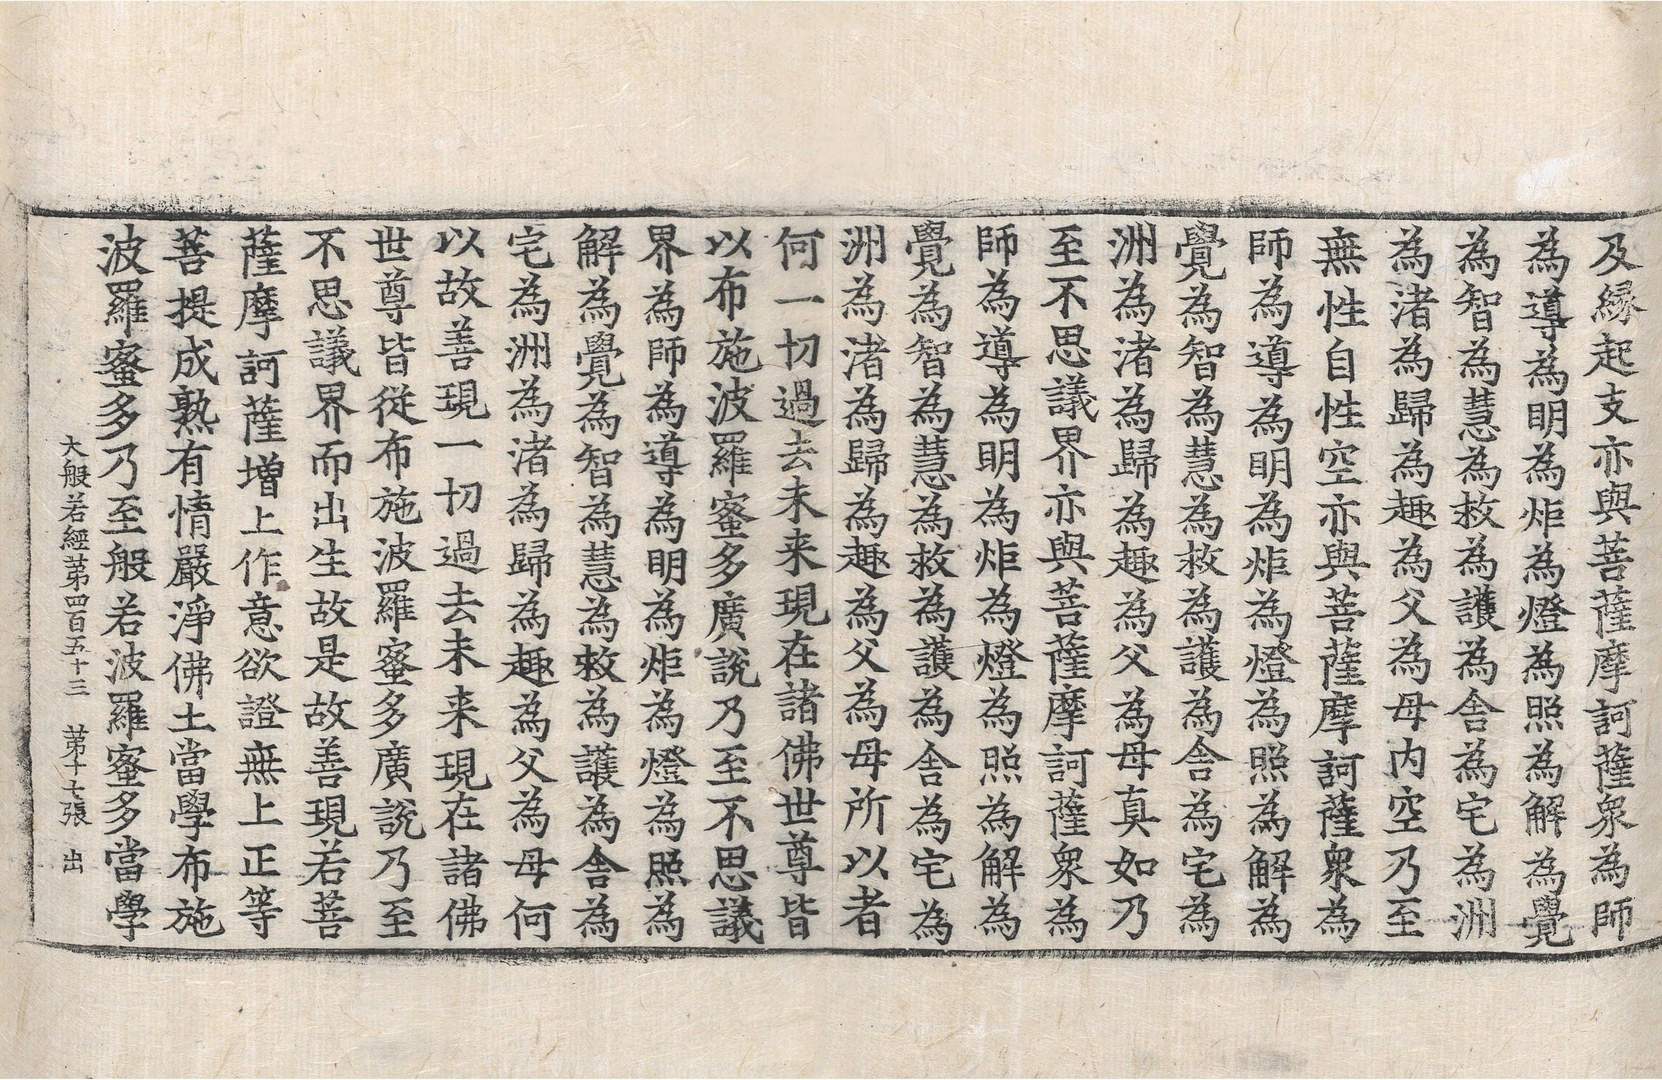 及縁起支亦與菩薩摩訶薩衆為師
為導為明為炬為燈為照為解為覺
為智為慧為救為護為舎為宅為洲
為渚為歸為趣為父為母内空乃至
無性自性空亦與菩薩摩訶薩衆為
師為導為明為炬為燈為照為解為
覺為智為慧為救為護為舎為宅為
洲為渚為歸為趣為父為母真如乃
至不思議界亦與菩薩摩訶薩衆為
師為導為明為炬為燈為照為解為
覺為智為慧為救為護為舎為宅為
洲為渚為歸為趣為父為母所以者
何一切過去未来現在諸佛世尊皆
以布施波羅蜜多廣說乃至不思議
界為師為導為明為炬為燈為照為
解為覺為智為慧為救為護為舎為
宅為洲為渚為歸為趣為父為母何
以故善現一切過去未来現在諸佛
世尊皆從布施波羅蜜多廣說乃至
不思議界而出生故是故善現若菩
薩摩訶薩增上作意欲證無上正等
菩提成熟有情嚴淨佛土當學布施
波羅蜜多乃至般若波羅蜜多當學
大般若經第四百五十三 第十七張 出